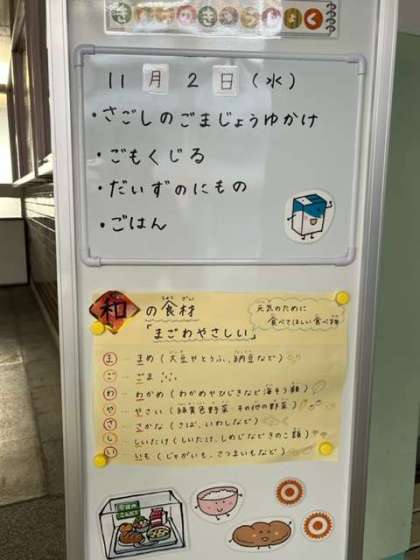 11月2日(水)
・さごしのごまじょうゆかけ
・ごもくじる
・だいずのにもの
・ごはん
和の食材
「まごわやさしい」
元気のために
食べてほしい食べ物
ま … まめ(大豆やとうふ、納豆など)
ご … ごま
わ … わかめ(わかめやひじきなど海そう類)
や … やさい(緑黄色野菜 その他の野菜)
さ … さかな(さば、いわしなど)
し … しいたけ(しいたけ、しめじなどきのこ類)
い … いも(じゃがいも、さつまいもなど)